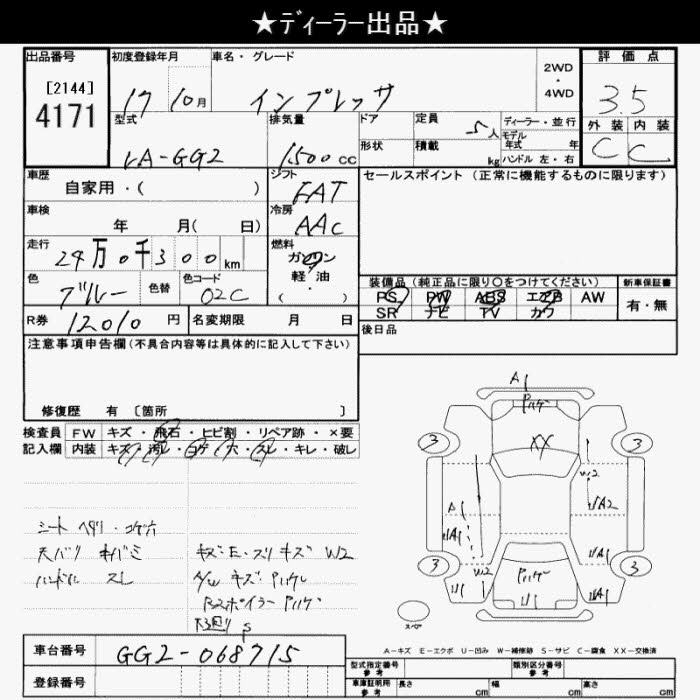 ★ディーラー出品★
出品番号 初度登録年月 車名・グレード 2WD・4WD 評価点
[2144]
4171
17 10月 インプレッサ 3.5
型式 排気量 ドア 定員 5人 ディーラー・並行 外装 内装
LA-GG2 1500cc 形状 積載 kg モデル年式 年 C C
ハンドル 左・右
車歴 シフト セールスポイント(正常に機能するものに限ります)
自家用・( ) FAT
車検 冷房
年 月( 日) AAC
走行 燃料
24万0千300km ガソリン
軽油
( )
色 色替 色コード 装備品(純正品に限り○をつけてください) 新車保証書
ブルー 02C PS PW ABS エアB AW 有・無
SR ナビ TV カワ
R券 12010円 名変期限 月 日 後日品
注意事項申告欄(不具合内容等は具体的に記入して下さい)
修復歴 有 〔箇所 〕
検査員 FW キズ・飛石・ヒビ割・リペア跡・×要
記入欄 内装 キズ・汚レ・コゲ・穴・スレ・キレ・破レ
シート ヘタリ・コゲ穴
天バリ キバミ キズE・スリキズ W2
ハンドル スレ A/W キズ・Pハゲ
Pハゲ
A1
Pハゲ
XX
3 3
W2
A1 UA2
UA1 UA1
3 3
Pハゲ W2
U1 U1 UA1
スペア
A-キズ E-エクボ U-凹み W-補修跡 S-サビ C-腐食 XX-交換済
車台番号 GG2-068715
登録番号
型式指定番号 参考 類別区分番号 参考
車庫証明用 参考 長さ cm 幅 cm 高さ cm